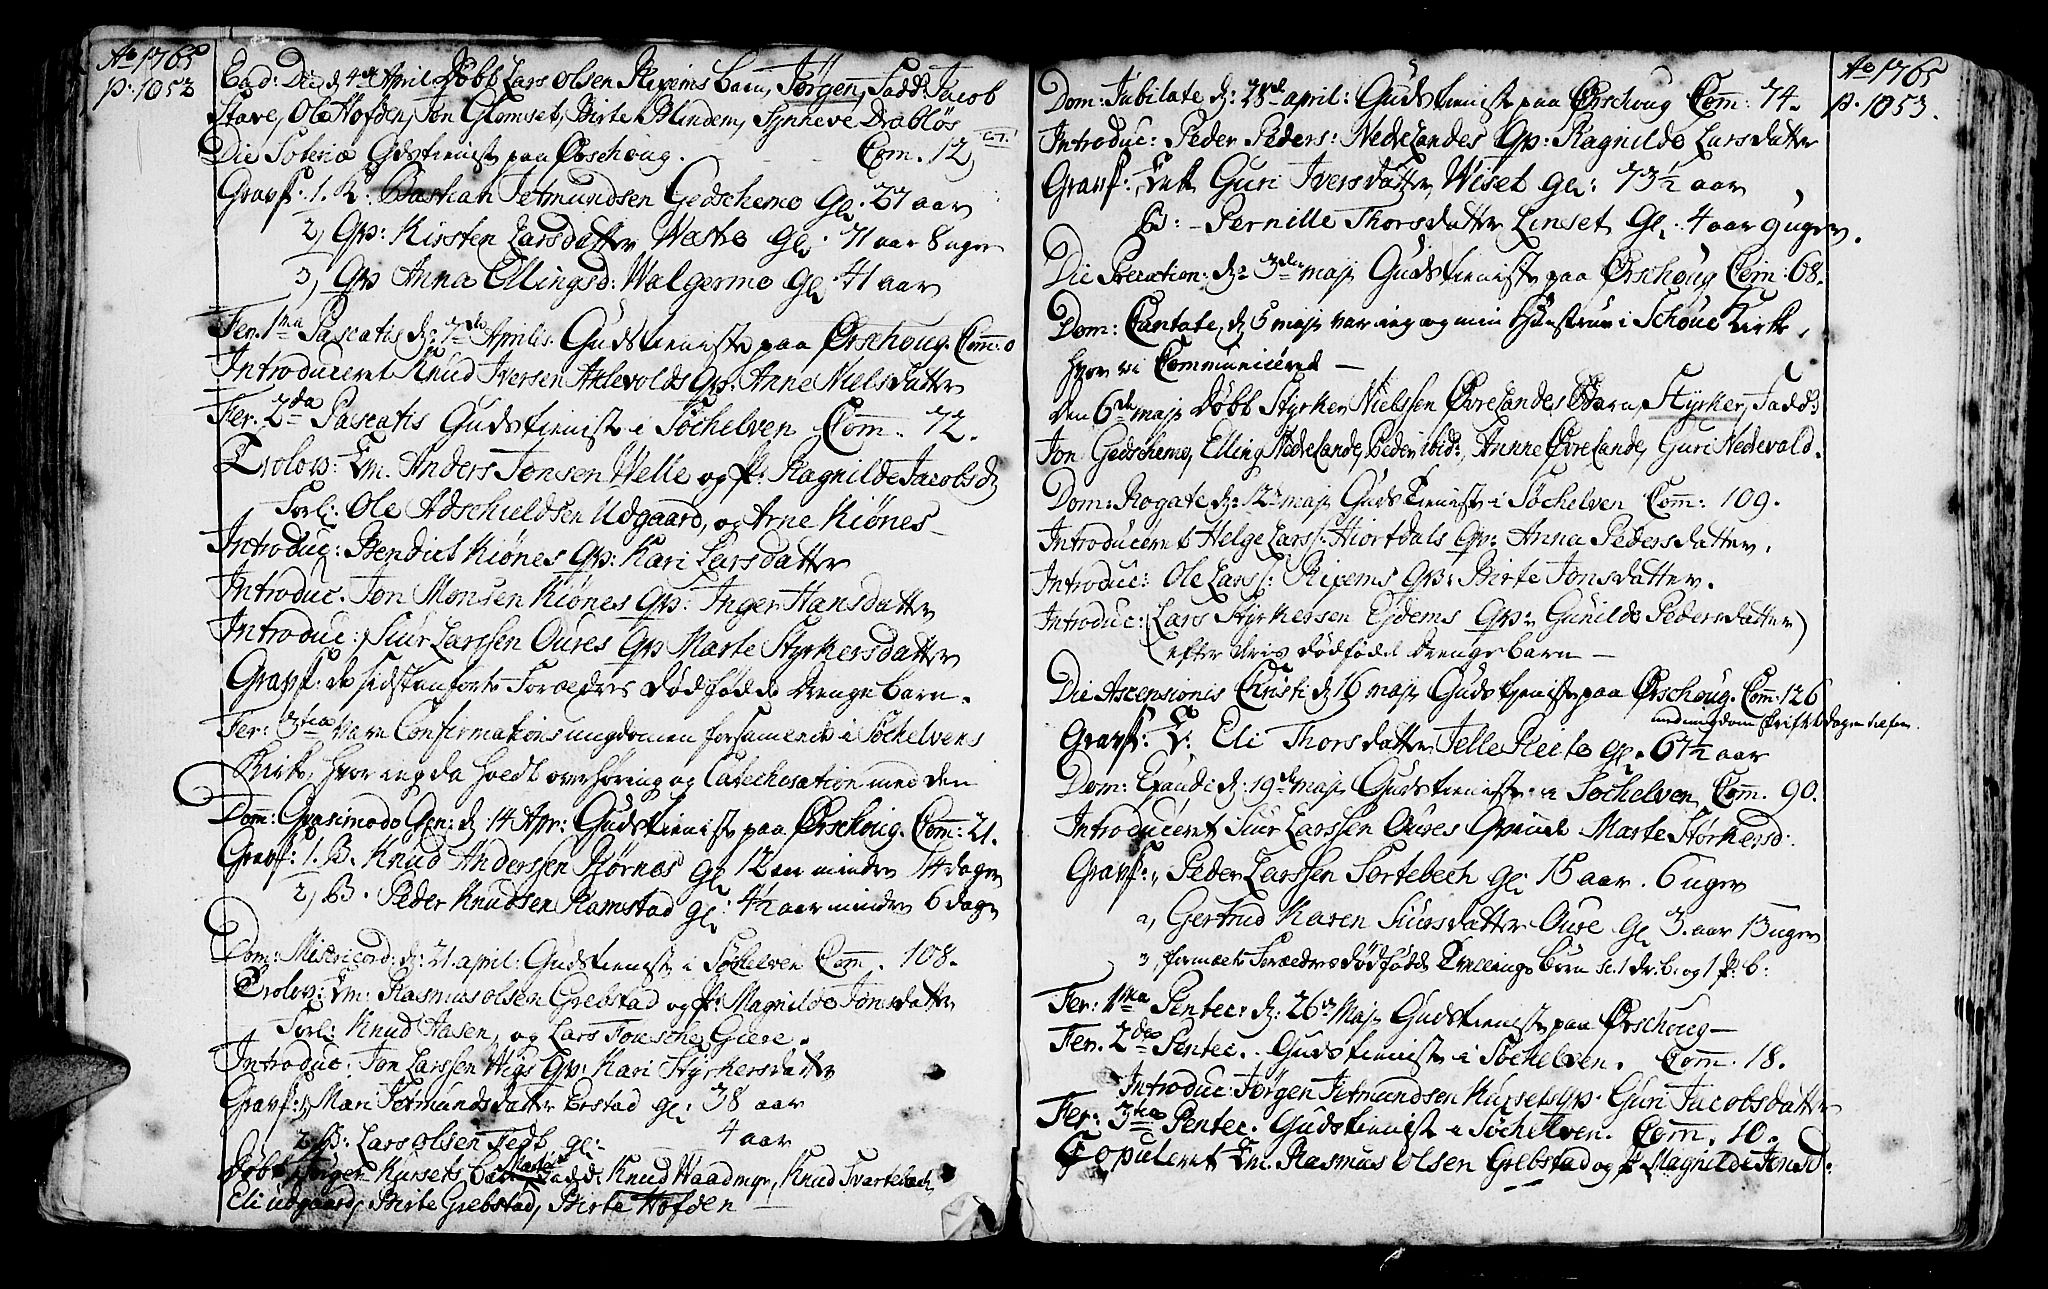 Ao 1765
p. 1052
Ead: Die d 4de April Døbt Lars Olsen Rexems barn, Jørgen, Fadd: Jacob
Stave, Ole Hofden, Jon Glomset, Birte Blindem, Synneve Drabløs
Die Soteriæ Gudstienist paa Ørschoug. Com. 12
Gravf: 1. K: Bastian Jetmundsen Gedschemo gl. 27 aar
2, Qv: Kirsten Larsdatter Westre gl: 71 aar 8 uger
3, Qv Anna Ellingsd: Walgermo gl 41 aar
Fer. 1ma Pascatis d: 7de Aprilis Gudstieniste paa Ørschoug. Com: 0
Introduceret Knud Iversen Aklevolds Qv: Anne Nielsdatter
Fer. 2da Pascatis Gudstienist i Søchelven Com. 72.
Trolov: Em. Anders Jonsen Welle og P: Ragnilde Jacobsd
Forl: Ole Adschieldsen Udgaard, og Arne Kiønes
Introduc: Bendict Kiønes Qv: Kari Larsdatter
Introduc. Jon Monsen Kiønes Qv: Inger Hansdatter
Introduc: Siur Larssen Oures Qv Marte Styrkersdatter
Gravf: de sidstanførte Foreldres dødfødde drenge barn.
Fer: 3tia var Confirmations ungdommen forsamlede i Søchelvens
Kirke, hvor ieg da holdt overhøring og Catechisation med den
Dom: Qvasimodo Gen: d 14 Apr: Gudstienist paa Ørschoug. Com: 21.
Gravf: 1. B. Knud Anderssen Biørnes gl 12 aar mindre 14 dager
2, B. Peder Knudsen Ramstad gl: 4½ aar mindre 6 dage
Dom: Misericord: d: 21 april: Gudstienist i Søchelven Com. 108.
Trolov: Em: Rasmus Olsen Grebstad og P: Magnilde Jonsdatter
Forl: Knud Aasen, og Lars Giere.
Introduc: Jon Larssen Wiigs Qv: Kari Styrkersdatter
Gravf: 1, Mari Jetmundsdatter Erstad gl: 38 aar
2 B: Lars Olsen gl: 4 aar
Døbt Jørgen Kursets barn Marte Fadd: Knud Waadmyr, Knud Svartebech
Eli Udgaard, Birte Grebstad, Birte Hofden
Ao 1765
p. 1053.
Dom: Jubilate d: 28de april: Gudstienist paa Ørschoug Com: 74.
Introduc: Peder Peders: Nedrelandes Qv: Ragnilde Larsdatter
Gravf: Guri Iversdatter Wiset gl: 73½ aar
B: Pernille Thorsdatter Linset gl: 4 aar 9 uger.
Die Precation: d: 3die maji Gudstieniste paa Ørschoug Com: 68.
Dom: Cantate, d 5 maji var ieg og min Hustrue i Schoue Kirke,
hvor vi Communicerede
Den 6de maji døbt Styrker Nielssen Øvrelandes Barn, Styrker, Fadd:
Jon Gedschemo, Elling Nedrelande, Peder ibid:, Annne Øvrelande, Guri Nedrevold.
Dom: Rogate d: 12te maji Gudstienist i Søchelven Com: 109.
Introduceret Helge Larss: Hiortdals Qv: Anna Pedersdatter.
Introduc: Ole Larss: Rexems Qv: Birte Jonsdatter.
Introduc: (Lars Styrkersen Ejdems Qv: Gunilde Pedersdatter)
(efter dødfødde drengebarn
Die Ascensionis Christi d 16 maji Gudstieniste paa Ørschoug. Com: 126
Gravf: Eli Thorsdatter Jelle Reite gl. 67½ aar
Dom: Exaudi d: 19de maji Gudstieniste i Søchelven Com. 90.
Introduceret Siur Larssen Oures Qvinde Marte Størkersd:
Gravf: 1, Peder Larssen Sortebech gl: 15 aar. 6 uger
2, Gertrud Karen Siursdatter Oure gl 3. aar 13 uger
3, Foreldres dødfødde Tvellings børn sc. 1 dr: b: og 1 P: b:
Fer: 1ma Pentec: d: 26de Maji Gudstieniste paa Ørschoug
Fer. 2dæ Pentec. Gudstieniste i Søchelven. Com. 18.
Introduc: Jørgen Jetmundsen Kursets Qv. Guri Jacobsdatter
Fer: 3tia Pentec. Gudstienist i Søchelven. Com. 10.
Copuleret Em. Rasmus Olsen Grebstad og P Magnilde Jonsd: